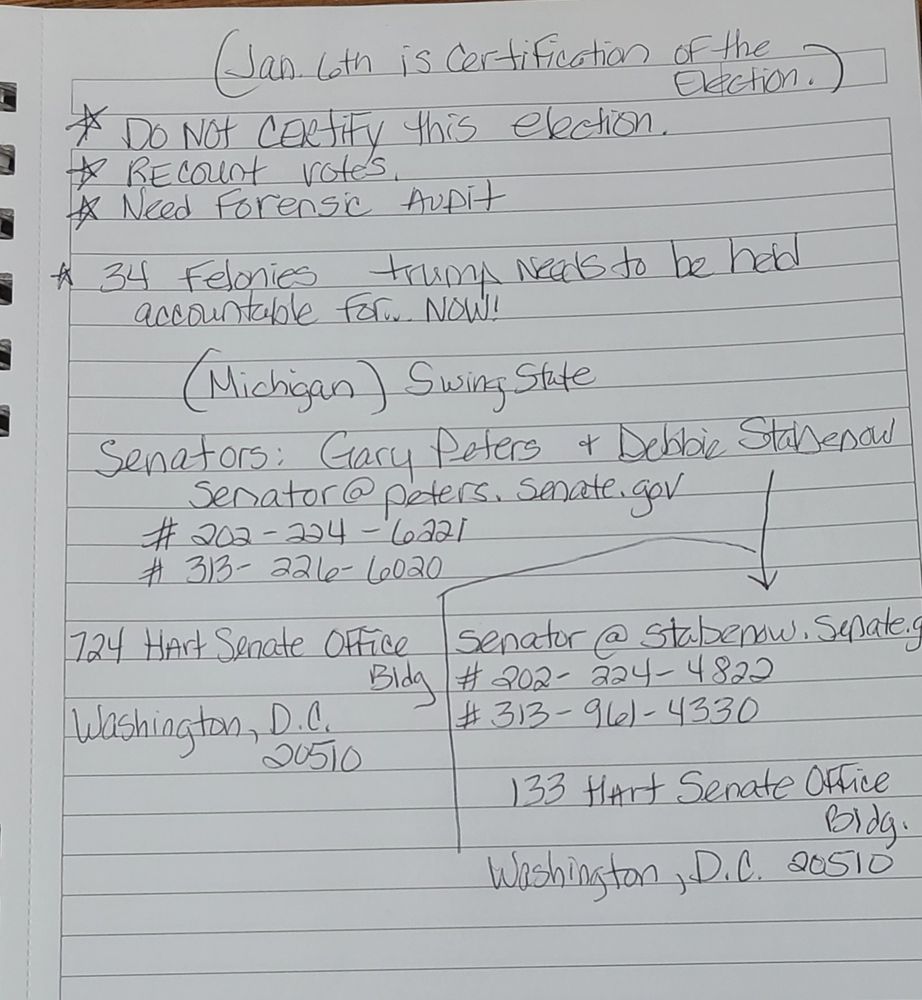 (Jan. 6th is Certification of the
Election.)
* DO NOT CERTIFY this election.
* RECOUNT votes.
* Need Forensic Audit
* 34 Felonies trump Needs to be held
accountable for... NOW!
(Michigan) Swing State
Senators: Gary Peters + Debbie Stabenow
Senator@peters.senate.gov
# 202-224-6221
# 313-226-6020
724 Hart Senate Office
Bldg
Washington, D.C.
20510
Senator@stabenow.senate.g
# 202-224-4822
# 313-961-4330
133 Hart Senate Office
Bldg.
Washington, D.C. 20510